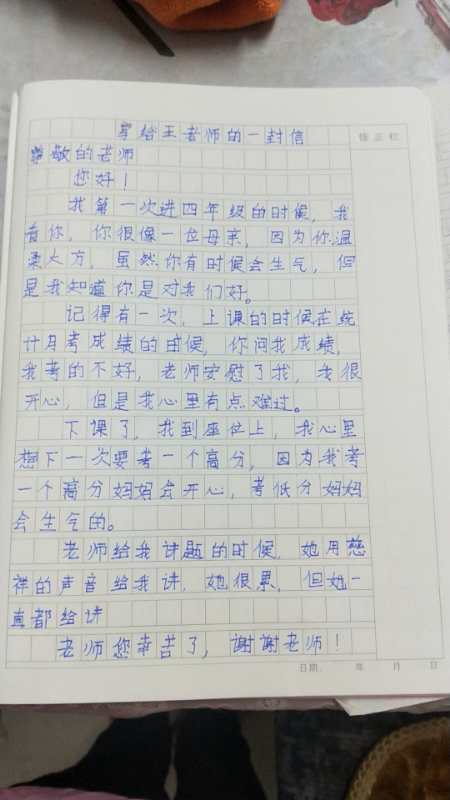 写给王老师的一封信
修正栏
尊敬的老师
您好！
我第一次进四年级的时候，我
看你，你很像一位母亲，因为你温
柔大方，虽然你有时候会生气，但
是我知道你是对我们好。
记得有一次，上课的时候在统
计月考成绩的时候，你问我成绩，
我考的不好，老师安慰了我，我很
开心，但是我心里有点难过。
下课了，我到座位上，我心里
想下一次要考一个高分，因为我考
一个高分妈妈会开心，考低分妈妈
会生气的。
老师给我讲题的时候，她用慈
祥的声音给我讲，她很累，但她一
直都给讲
老师您幸苦了，谢谢老师！
日期： 年 月 日